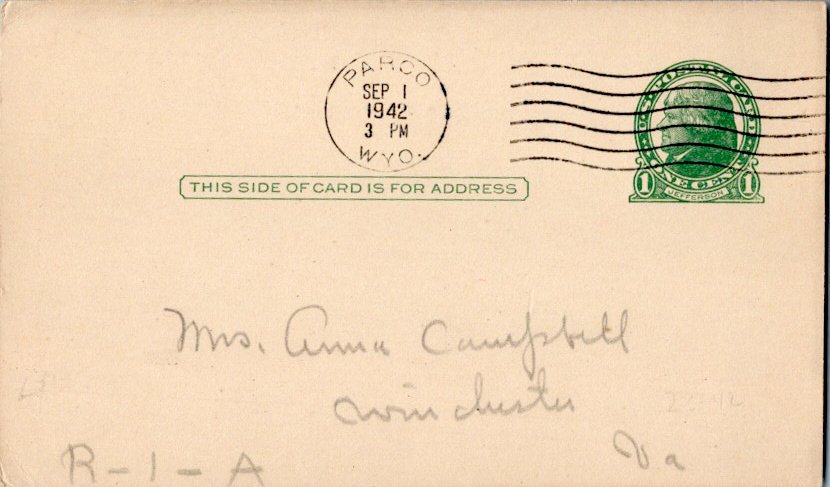 PARCO
SEP 1
1942
3 PM
WYO.
U.S. POSTAL CARD
ONE CENT
1 JEFFERSON 1
THIS SIDE OF CARD IS FOR ADDRESS
Mrs. Anna Campbell
Winchester
Va
R-1-A